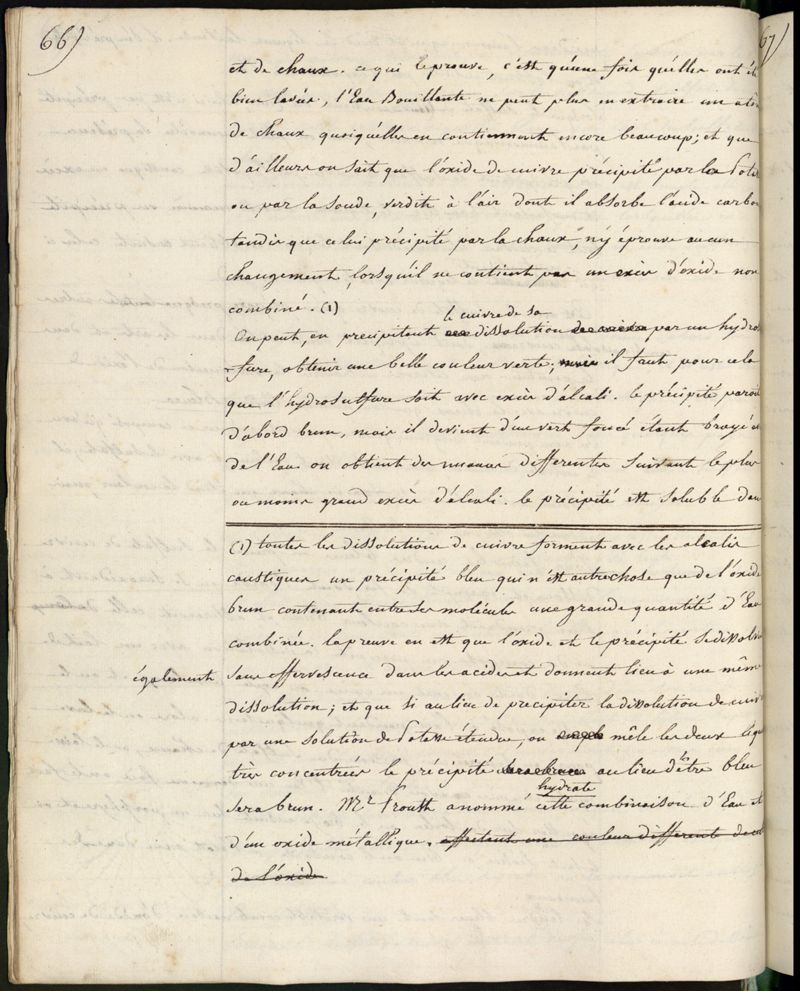 66)
67)
et de chaux. ce qui le prouve, c'est qu'une fois qu'elles ont été
bien lavées, l'Eau Bouillante ne peut plus en extraire un atô
de chaux quoiqu'elles en contiennent encore beaucoup; et que
d'ailleurs on sait que l'oxide de cuivre précipité par la Potas
ou par la soude, verdit à l'air dont il absorbe l'acide carbo
tandis que celui précipité par la chaux, n'y éprouve aucun
changement, lorsqu'il ne contient pas un excès d'oxide non
combiné. (1)
le cuivre de sa
On peut, en precipitant dissolution de cuivre par un hydros
-fure, obtenir une belle couleur verte; mais il faut pour cela
que l'hydrosulfure soit avec excès d'alcali. le précipité paroit
d'abord brun, mais il devient d'un vert foncé étant broyé a
de l'Eau on obtient des nuances differentes suivant le plus
ou moins grand excès d'alcali. le précipité est soluble dan
(1) toutes les dissolutions de cuivre forment avec les alcalis
caustiques un précipité bleu qui n'est autre chose que de l'oxide
brun contenant entre ses molécules une grande quantité d'Eau
combinée. la preuve en est que l'oxide et le précipité se dissolve
également
sans effervescence dans les acides et donnent lieu à une même
dissolution; et que si au lieu de precipiter la dissolution de cuivr
par une solution de Potasse étendue, on mêle les deux liqu
très concentrées le précipité sera brun au lieu d'être bleu
hydrate
sera brun. Mr. Proust a nommé cette combinaison d'Eau et
d'un oxide métallique. affectant une couleur different de cel
de l'oxide